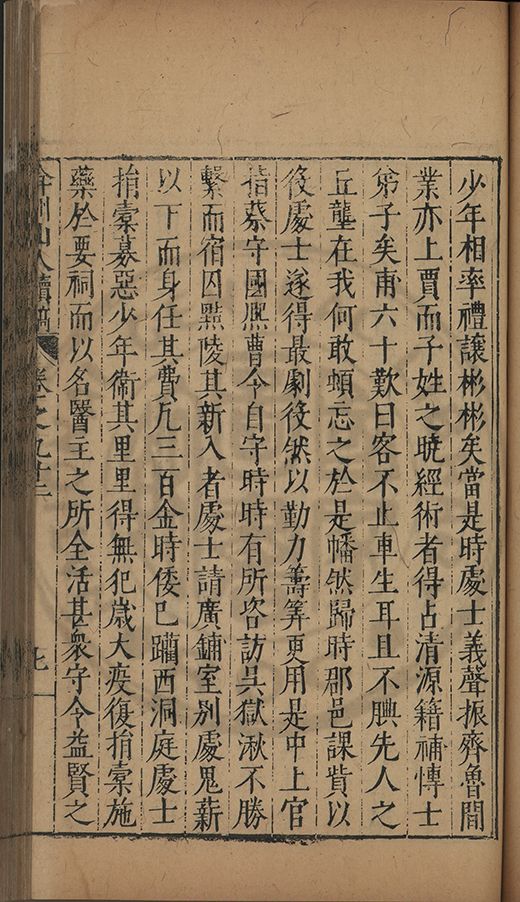 少年相率禮讓彬彬矣當是時處士義聲振齊魯間
業亦上賈而子姓之曉經術者得占清源籍補博士
弟子矣甫六十歎曰客不止車生耳且不腆先人之
丘壟在我何敢頓忘之於是幡然歸時郡邑課貲以
役處士遂得最劇役然以勤力籌筭更用是中上官
指蔡守國熙曹令自守時時有所咨訪具獄湫不勝
繫而宿囚㸃陵其新入者處士請廣鋪室别處鬼薪
以下而身任其費凡三百金時倭已躪西洞庭處士
捐橐募惡少年衞其里里得無犯歳大疫復捐橐施
藥於要祠而以名醫主之所全活甚衆守令益賢之
弇州山人續稿 卷之九十三 七